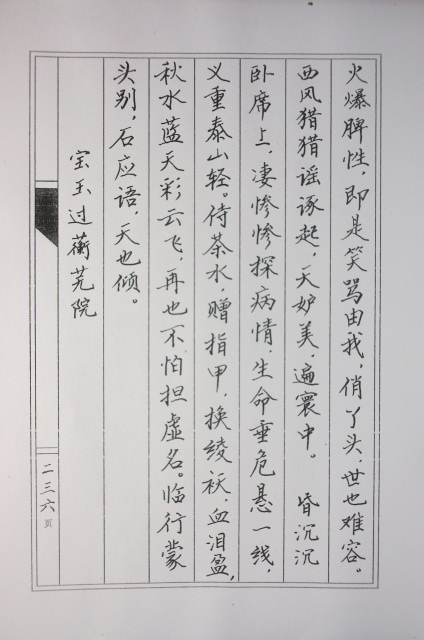 火爆脾性，即是笑骂由我，俏丫头，世也难容。
西风猎猎谣诼起，天妒美，遍寰中。 昏沉沉
卧席上，凄惨惨探病情，生命垂危悬一线，
义重泰山轻。侍茶水，赠指甲，换绫袄，血泪盈，
秋水蓝天彩云飞，再也不怕担虚名。临行蒙
头别，石应语，天也倾。
宝玉过蘅芜院
二三六页